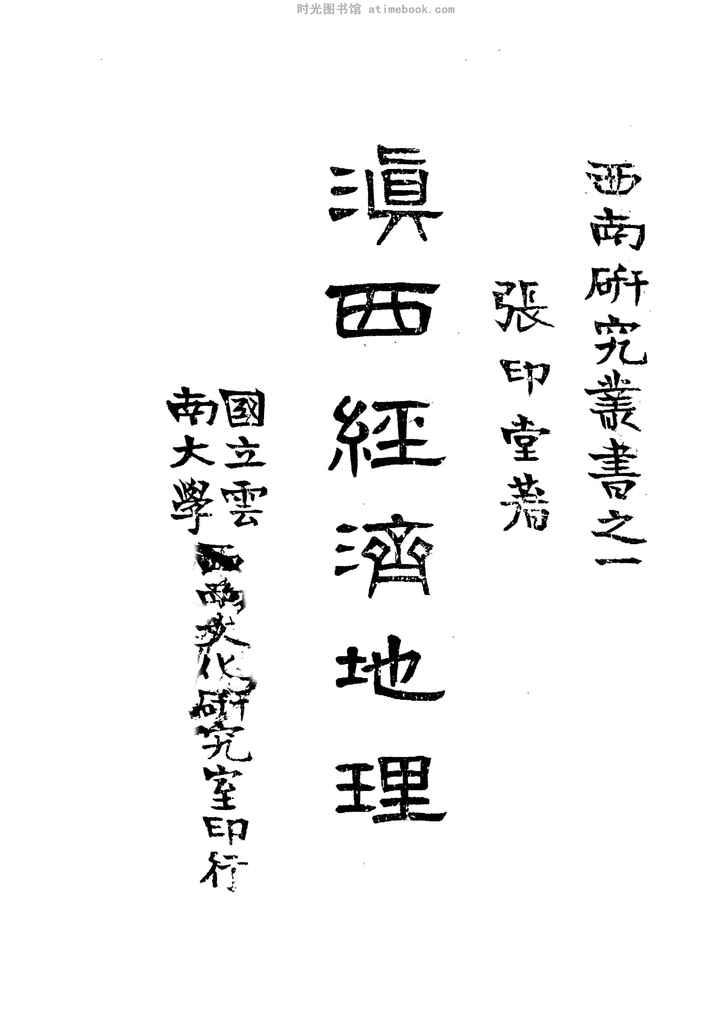 时光图书馆 atimebook.com
西南研究叢書之一
張印堂著
滇西經濟地理
國立雲
南大學
西南文化研究室印行